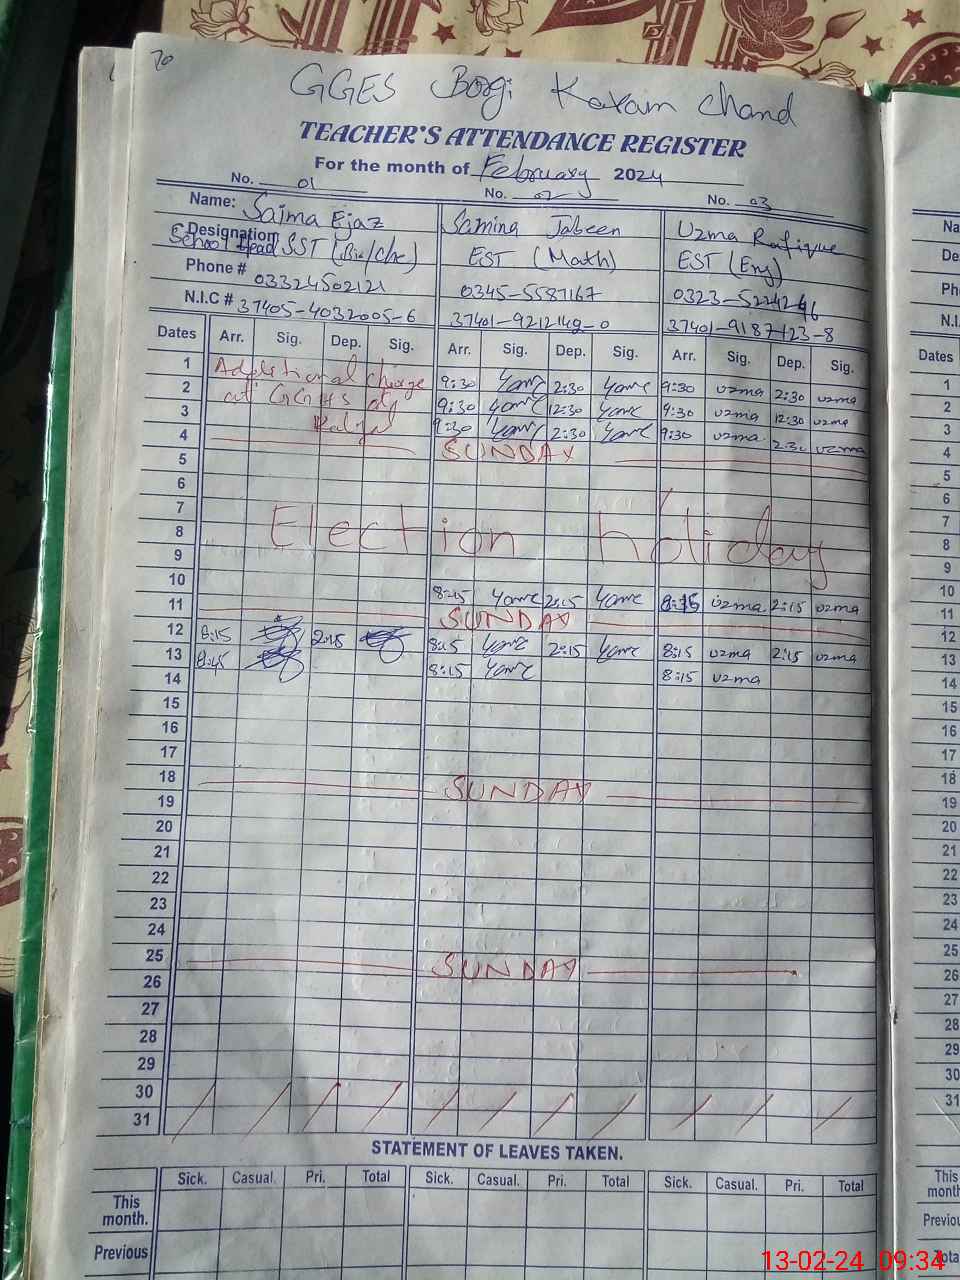 70
GGES Borgi Karam Chand
TEACHER'S ATTENDANCE REGISTER
For the month of February 2024
No. 01 No. 02 No. 03
Name: Saima Ejaz Samina Jabeen Uzma Rafique
Designation School Head SST (Bio/Che) EST (Math) EST (Eng)
Phone # 03324502121 0345-5587167
N.I.C # 37405-4032005-6 37401-9212149-0 37401-9187123-8
Dates Arr. Sig. Dep. Sig. Arr. Sig. Dep. Sig. Arr. Sig. Dep. Sig.
1 Additional charge 9:30 2:30 9:30 uzma 2:30 uzma
2 at GGHS 9:30 12:30 9:30 uzma 12:30 uzma
3 9:30 2:30 9:30 uzma 2:30 uzma
4 SUNDAY
5
6
7 Election holiday
8
9
10 8:15 2:15 8:15 uzma 2:15 uzma
11 SUNDAY
12 8:15 2:15 8:15 2:15 8:15 uzma 2:15 uzma
13 8:45 8:15 8:15 uzma
14
15
16
17
18 SUNDAY
19
20
21
22
23
24
25 SUNDAY
26
27
28
29
30
31
STATEMENT OF LEAVES TAKEN.
Sick. Casual. Pri. Total Sick. Casual. Pri. Total Sick. Casual. Pri. Total
This month.
Previous
Na
De
Ph
N.I
Dates
1
2
3
4
5
6
7
8
9
10
11
12
13
14
15
16
17
18
19
20
21
22
23
24
25
26
27
28
29
30
31
This
month
Previou
13-02-24 09:34